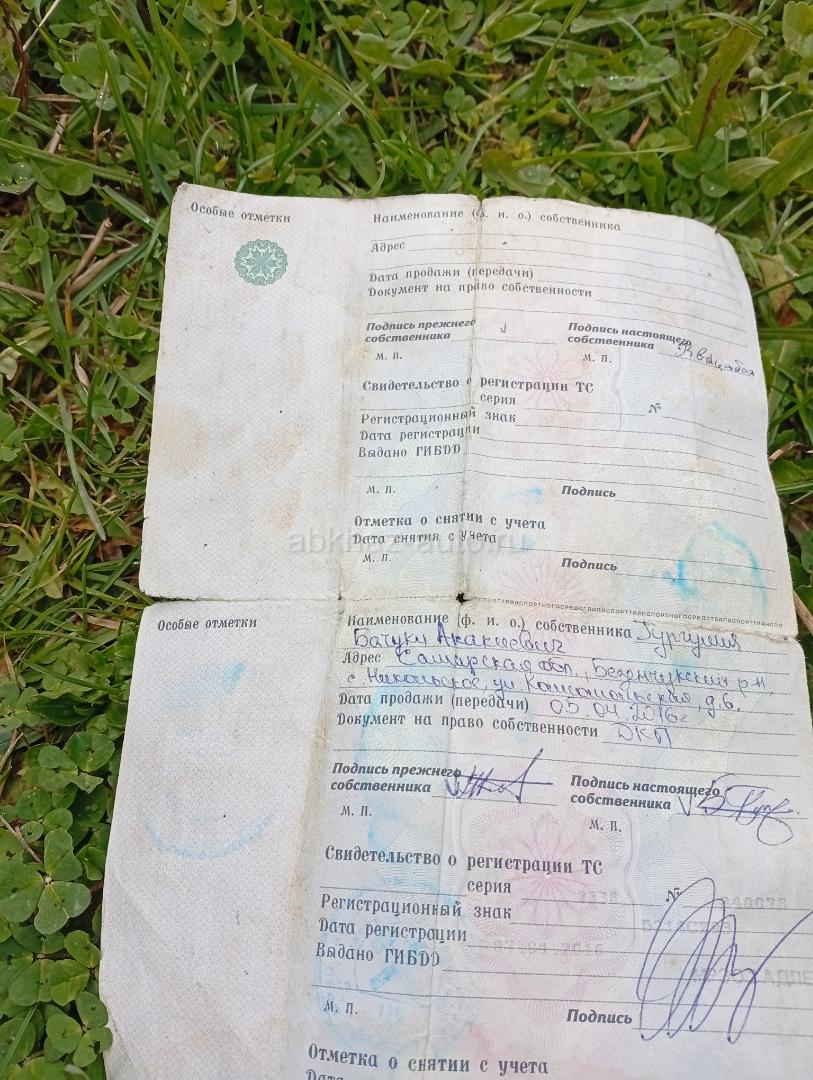 Особые отметки
Наименование (ф. и. о.) собственника
Адрес
Дата продажи (передачи)
Документ на право собственности
Подпись прежнего собственника
Подпись настоящего собственника
М. П.
М. П.
Свидетельство о регистрации ТС
серия №
Регистрационный знак
Дата регистрации
Выдано ГИБДД
М. П.
Подпись
Отметка о снятии с учета
Дата снятия с учета
abkhaz-auto.ru
М. П.
Подпись
Особые отметки
Наименование (ф. и. о.) собственника Гургулия
Бачуки Акакиевич
Адрес Самарская обл., Безенчукский р-н,
с. Никольское, ул. Комсомольская, д.6.
Дата продажи (передачи) 05.04.2016г
Документ на право собственности ДКП
Подпись прежнего собственника
Подпись настоящего собственника
М. П.
М. П.
Свидетельство о регистрации ТС
серия 2338 №
Регистрационный знак
Дата регистрации 07.04.2016
Выдано ГИБДД
М. П.
Подпись
Отметка о снятии с учета